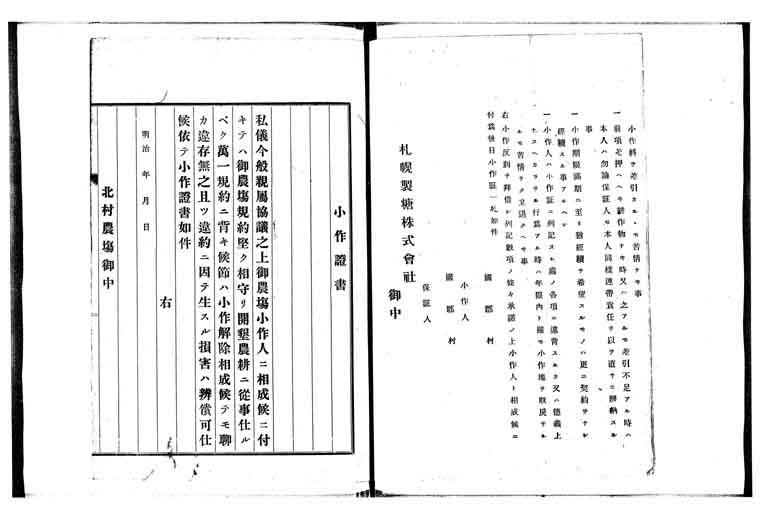 小作料ヲ差引スルモ苦情ナキ事
一前項差押ハヘキ耕作物ナキ時又ハ之アルモ差引不足アル時ハ
本人ハ勿論保証人モ本人同様連帯責任ヲ以テ直チニ辨納スル
事
一小作期限満期ニ至リ猶経續ヲ希望スルモノハ更ニ契約ヲナシ
經續スル事アルヘシ
一小作人ハ小作証ニ列記スル處ノ各項ニ違背スルカ又ハ德義上
ナスヘカラサル行爲アル時ハ年限内ト雖モ小作地ヲ取戻サル
ルモ苦情ナク立退クヘキ事
右小作反別ヲ拜借シ列記數項ノ條々承諾ノ上小作人ト相成候ニ
付爲後日小作証一札如件
國 郡 村
小作人
國 郡 村
保証人
札幌製糖株式會社 御中
小作證書
私儀今般親屬協議之上御農塲小作人ニ相成候ニ付
キテハ御農塲規約堅ク相守リ開墾農耕ニ從事仕ル
ベク萬一規約ニ背キ候節ハ小作解除相成候テモ聊
カ違存無之且ツ違約ニ因テ生スル損害ハ辨償可仕
候依テ小作證書如件
明治 年 月 日
右
北村農塲御中